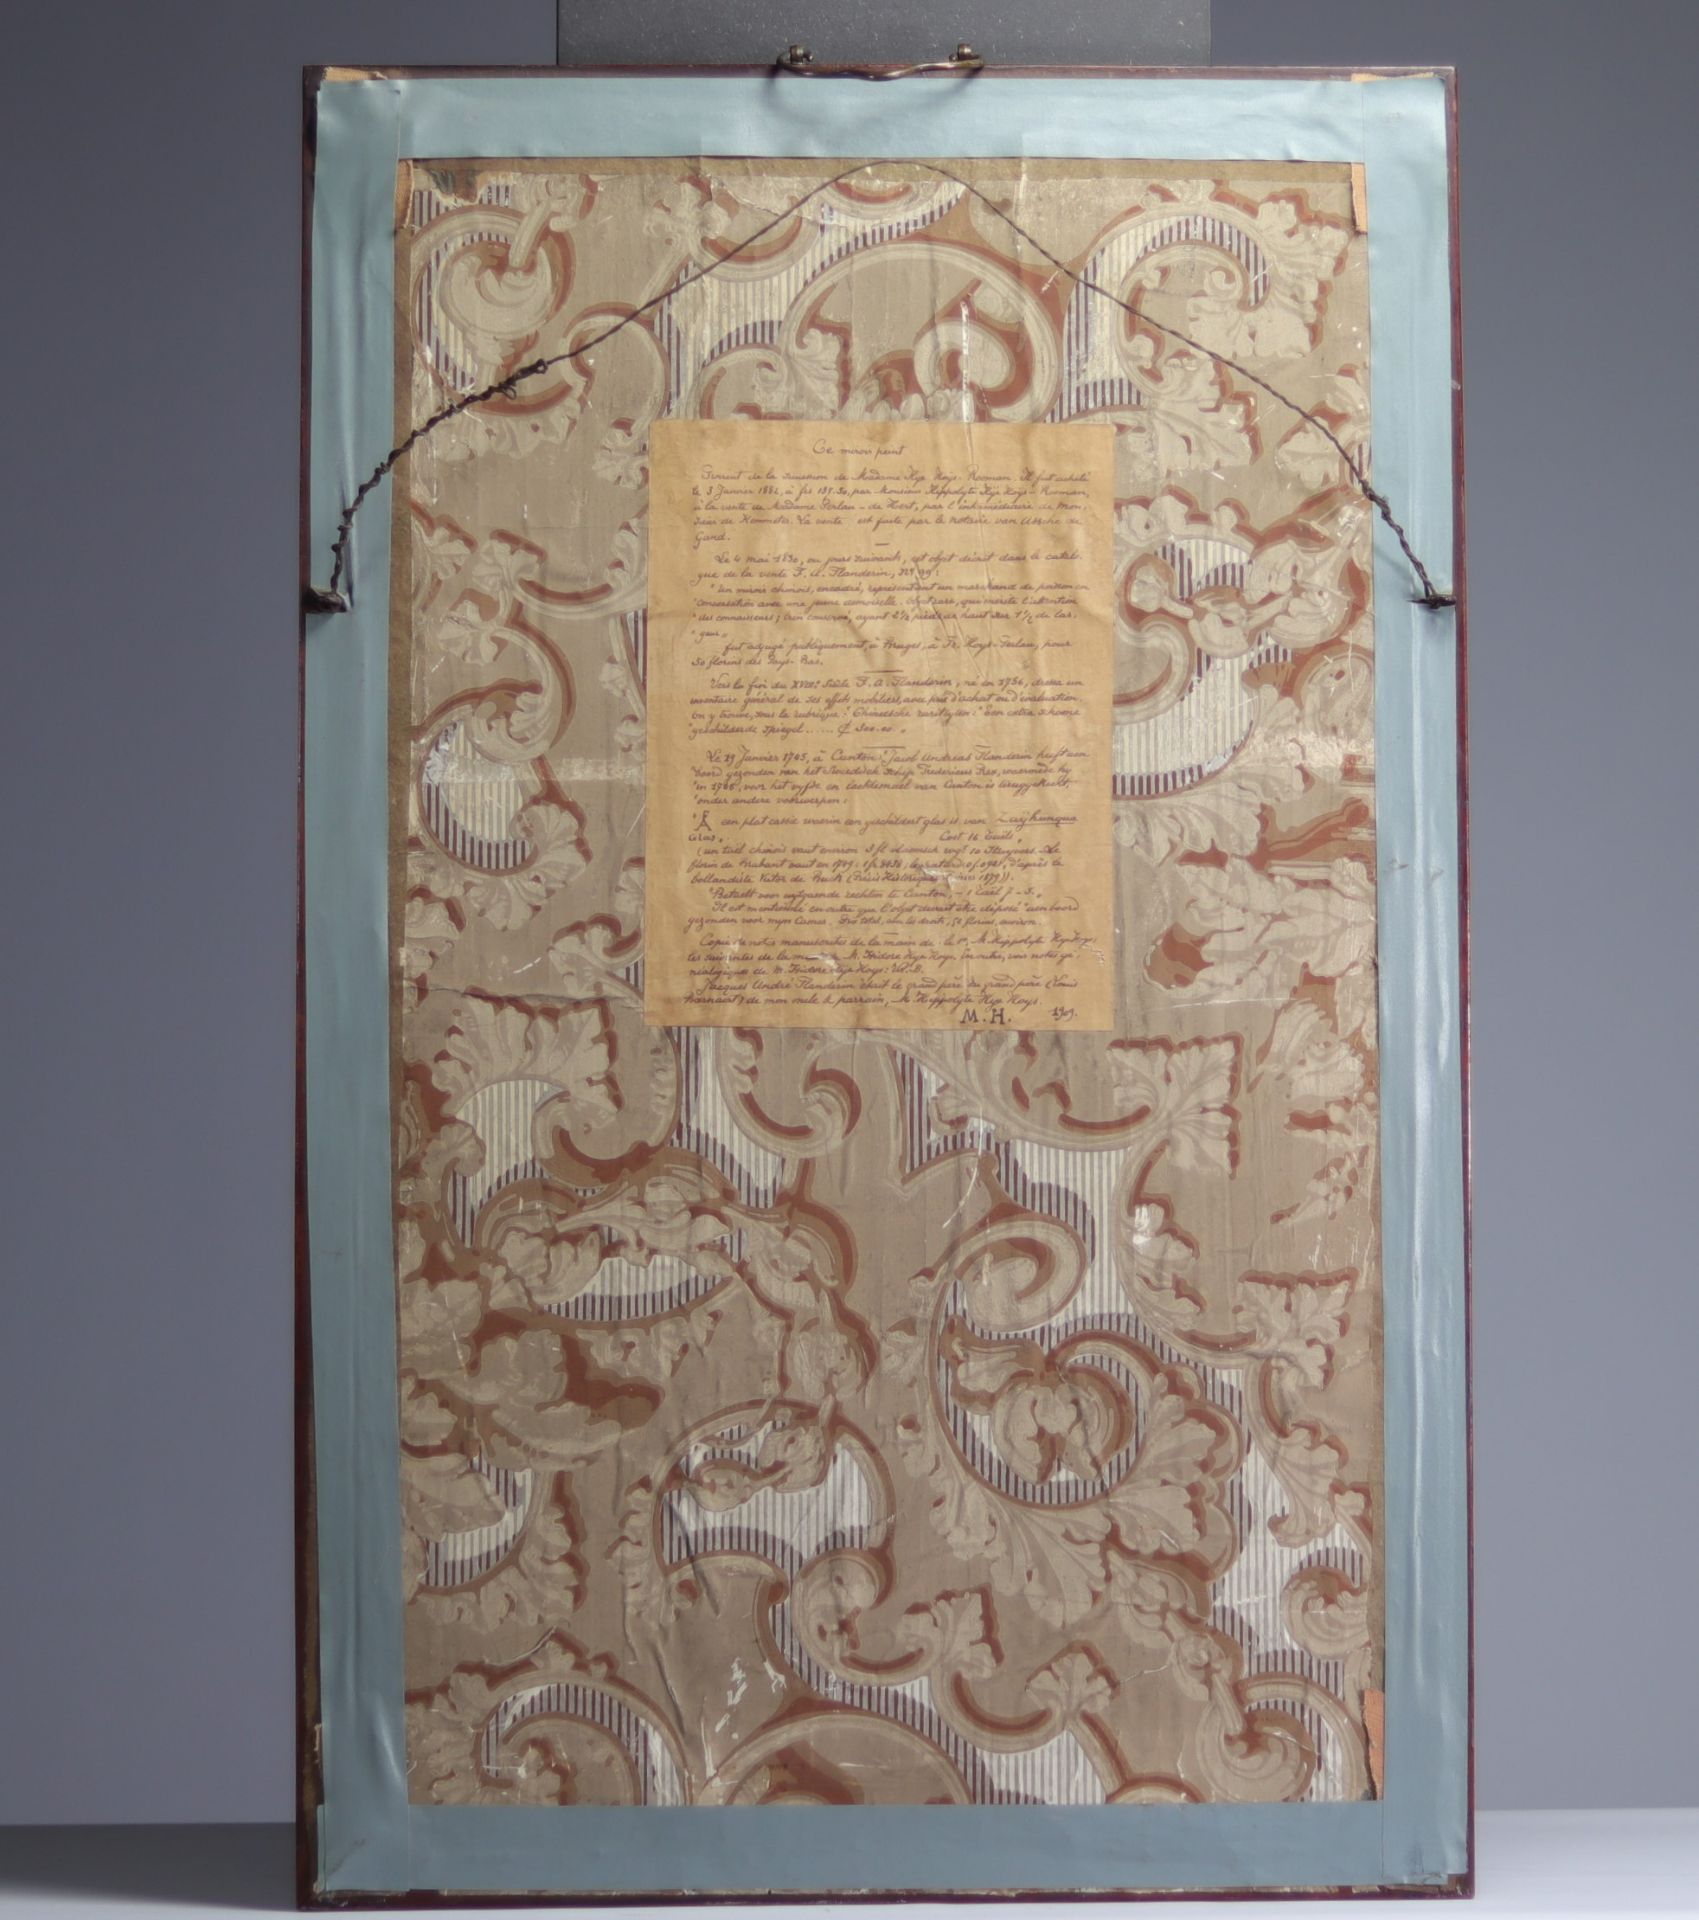 Ce miroir peint
Provient de la succession de Madame Hye Hoys-Rooman. Il fut acheté
le 3 Janvier 1882, à frs 137.50, par Monsieur Hippolyte Hye Hoys-Rooman,
à la vente de Madame Serlau-de Hert, par l'intermédiaire de Mon.
sieur de Hemmeter. La vente est faite par le notaire van Assche de
Gand.
Le 4 mai 1830, ou jours suivants, cet objet décrit dans le catalo.
gue de la vente F. A. Flanderin, No 99:
"Un miroir chinois, encadré, représentant un marchand de poisson en
"conversation avec une jeune demoiselle. Objet rare, qui mérite l'attention
"des connaisseurs; bien conservé, ayant 2½ pieds de haut sur 1½ de lar.
"geur"
fut adjugé publiquement, à Bruges, à Fr. Hoys-Serlau, pour
50 florins des Pays-Bas.
Vers la fin du XVIIIe Siècle F. A. Flanderin, né en 1756, dressa un
inventaire général de ses effets mobiliers, avec prix d'achat ou d'évaluation.
On y trouve, sous la rubrique: "Chineesche rariteyten:" "Een extra schoone
"geschilderde Spiegel ..... 300.00."
Le 29 Janvier 1765, à Canton "Jacob Andreas Flanderin heeft aen
"boord gezonden van het Sweedisch Schip Fredericus Rex, waermede hy
"in 1765, voor het vyfde en lachtemael van Canton is teruggekeerd,
"onder andere voorwerpen:
" een plat cassie waerin een geschildert glas is van Zaÿhunqua
Glas". Cost 16 Taëls
(un taël chinois vaut environ 3 fl wisselgelt 10 Stuyvers. Le
florin de Brabant vaut en 1789: 1 fr. 8138; d'après le
bollandiste Victor de Buck (Précis Historiques 1879)).
"Betaelt voor uytgaende rechten te Canton, - 1 Taël 7-5."
Il est mentionné en outre que l'objet devait être déposé "aen boord
gezonden voor myn Camer. Prix total, avec les droits, 50 florins, environ.
Copie de notes manuscrites de la main de M. Hippolyte Hye Hoys;
les suivantes de la main de M. Isidore Hye Hoys. En outre, voir notes gé.
néalogiques de M. Isidore Hye Hoys: N.B.
Jacques André Flanderin était le grand père du grand père (Louis
Beernaert) de mon oncle & parrain, M. Hippolyte Hye Hoys.
M.H. 1909.